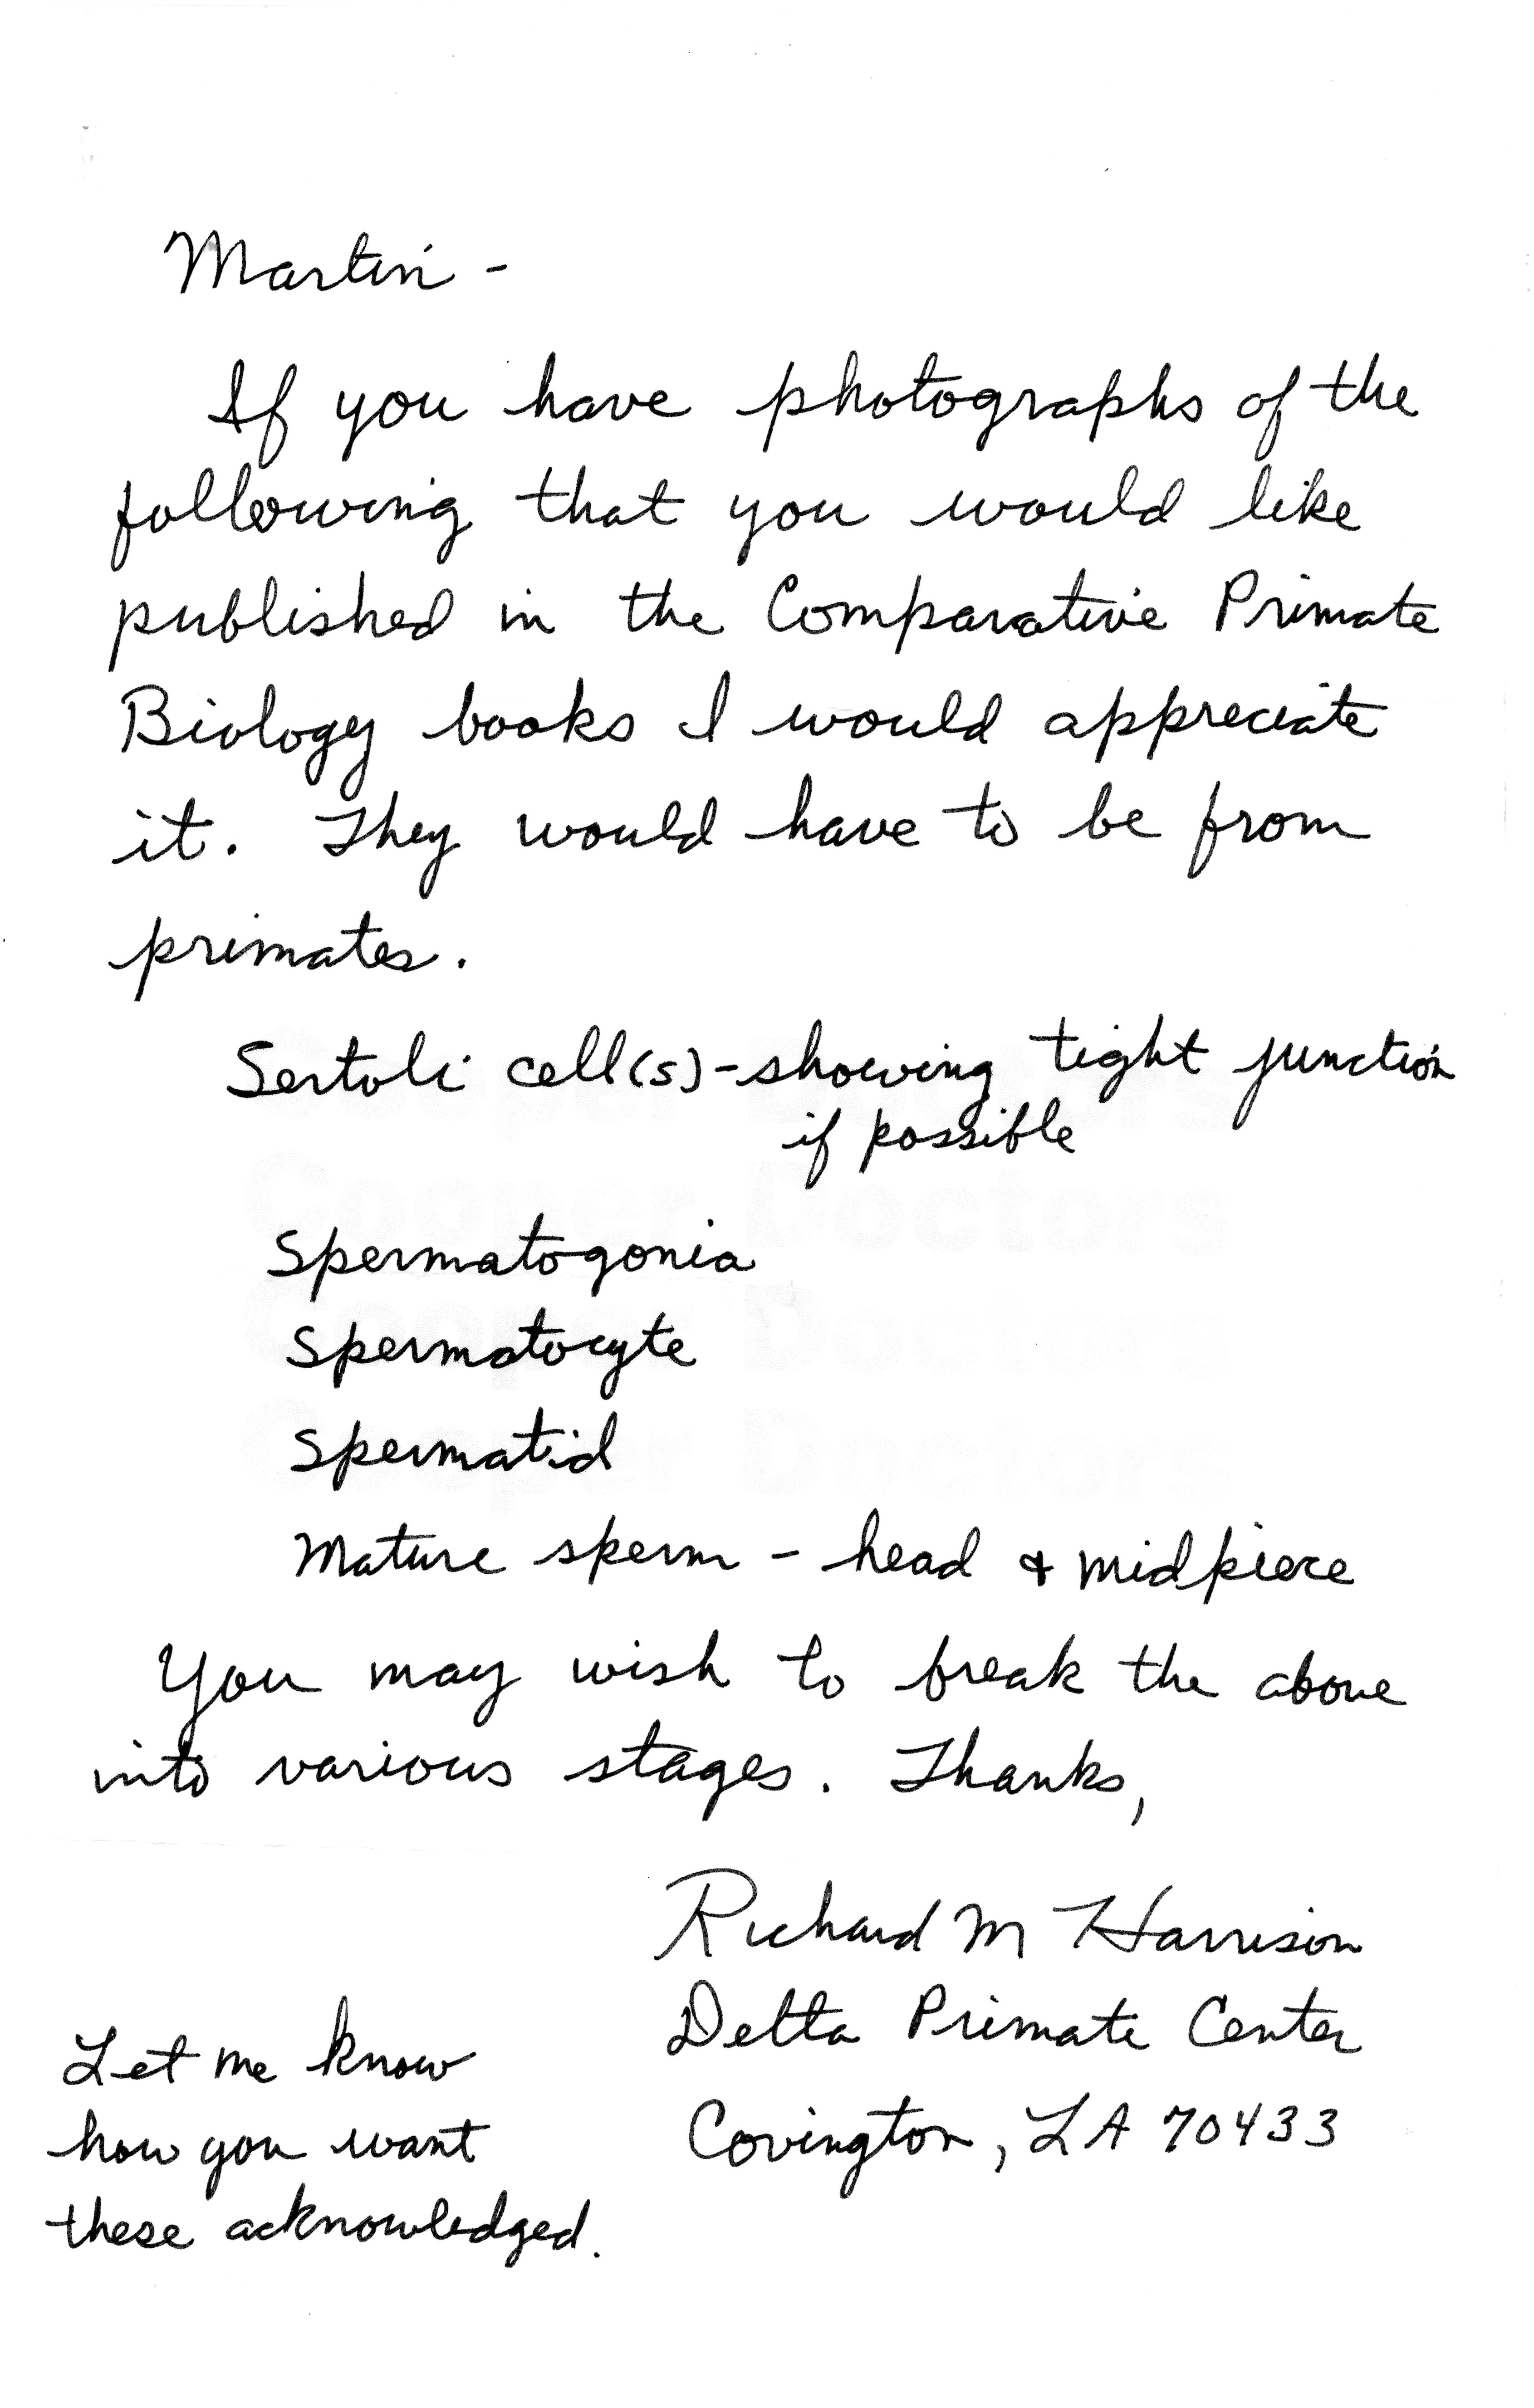 Martin -
If you have photographs of the
following that you would like
published in the Comparative Primate
Biology books I would appreciate
it. They would have to be from
primates.
Sertoli cell(s) - showing tight junction
if possible
Spermatogonia
Spermatocyte
Spermatid
Mature sperm - head & midpiece
You may wish to break the above
into various stages. Thanks,
Richard M Harrison
Delta Primate Center
Covington, LA 70433
Let me know
how you want
these acknowledged.